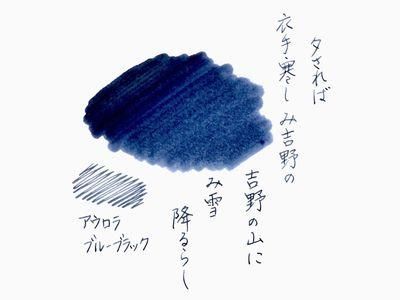 夕されば
衣手寒し み吉野の
吉野の山に
み雪
降るらし
アウロラ
ブルーブラック